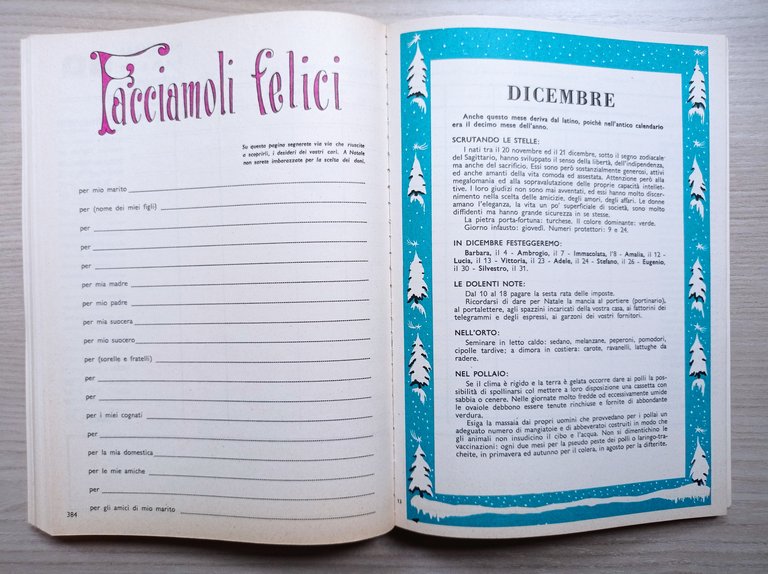 Facciamoli felici
Su questa pagina segnerete via via che riuscite
a scoprirli, i desideri dei vostri cari. A Natale
non sarete imbarazzate per la scelta dei doni.
per mio marito
per (nome dei miei figli)
per
per
per
per mia madre
per mio padre
per mia suocera
per mio suocero
per (sorelle e fratelli)
per
per
per i miei cognati
per
per la mia domestica
per le mie amiche
per
per gli amici di mio marito
384
DICEMBRE
Anche questo mese deriva dal latino, poichè nell'antico calendario
era il decimo mese dell'anno.
SCRUTANDO LE STELLE:
I nati tra il 20 novembre ed il 21 dicembre, sotto il segno zodiacale
del Sagittario, hanno sviluppato il senso della libertà, dell'indipendenza,
ma anche del sacrificio. Essi sono però sostanzialmente generosi, attivi
ed anche amanti della vita comoda ed assestata. Attenzione però alla
megalomania ed alla sopravalutazione delle proprie capacità intellet-
tive. I loro giudizi non sono mai avventati, ed essi hanno molto discer-
nimento nella scelta delle amicizie, degli amori, degli affari. Le donne
amano l'eleganza, la vita un po' superficiale di società, sono molto
diffidenti ma hanno grande sicurezza in se stesse.
La pietra porta-fortuna: turchese. Il colore dominante: verde.
Giorno infausto: giovedì. Numeri protettori: 9 e 24.
IN DICEMBRE FESTEGGEREMO:
Barbara, il 4 - Ambrogio, il 7 - Immacolata, l'8 - Amalia, il 12 -
Lucia, il 13 - Vittoria, il 23 - Adele, il 24 - Stefano, il 26 - Eugenio,
il 30 - Silvestro, il 31.
LE DOLENTI NOTE:
Dal 10 al 18 pagare la sesta rata delle imposte.
Ricordarsi di dare per Natale la mancia al portiere (portinario),
al portalettere, agli spazzini incaricati della vostra casa, ai fattorini dei
telegrammi e degli espressi, ai garzoni dei vostri fornitori.
NELL'ORTO:
Seminare in letto caldo: sedano, melanzane, peperoni, pomodori,
cipolle tardive; a dimora in costiera: carote, ravanelli, lattughe da
radere.
NEL POLLAIO:
Se il clima è rigido e la terra è gelata occorre dare ai polli la pos-
sibilità di spollinarsi col mettere a loro disposizione una cassetta con
sabbia o cenere. Nelle giornate molto fredde od eccessivamente umide
le ovaiole debbono essere tenute rinchiuse e fornite di abbondante
verdura.
Esiga la massaia dai propri uomini che provvedano per i pollai un
adeguato numero di mangiatoie e di abbeveratoi costruiti in modo che
gli animali non insudicino il cibo e l'acqua. Non si dimentichino le
vaccinazioni: ogni due mesi per la pseudo peste dei polli o laringo-tra-
cheite, in primavera ed autunno per il colera, in agosto per la differite.
13